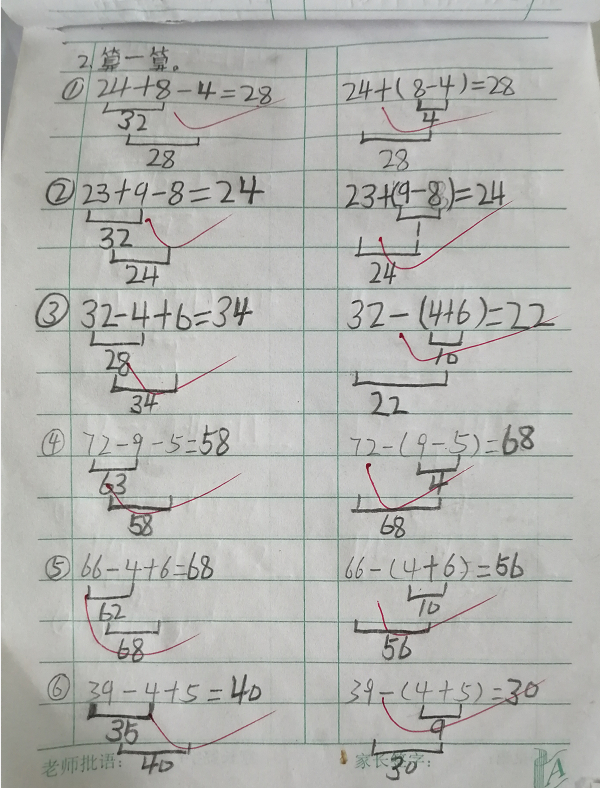 2. 算一算。
① 24+8-4=28 24+(8-4)=28
32 4
28 28
② 23+9-8=24 23+(9-8)=24
32 1
24 24
③ 32-4+6=34 32-(4+6)=22
28 10
34 22
④ 72-9-5=58 72-(9-5)=68
63 4
58 68
⑤ 66-4+6=68 66-(4+6)=56
62 10
68 56
⑥ 39-4+5=40 39-(4+5)=30
35 9
40 30
老师批语: 家长签字:
A